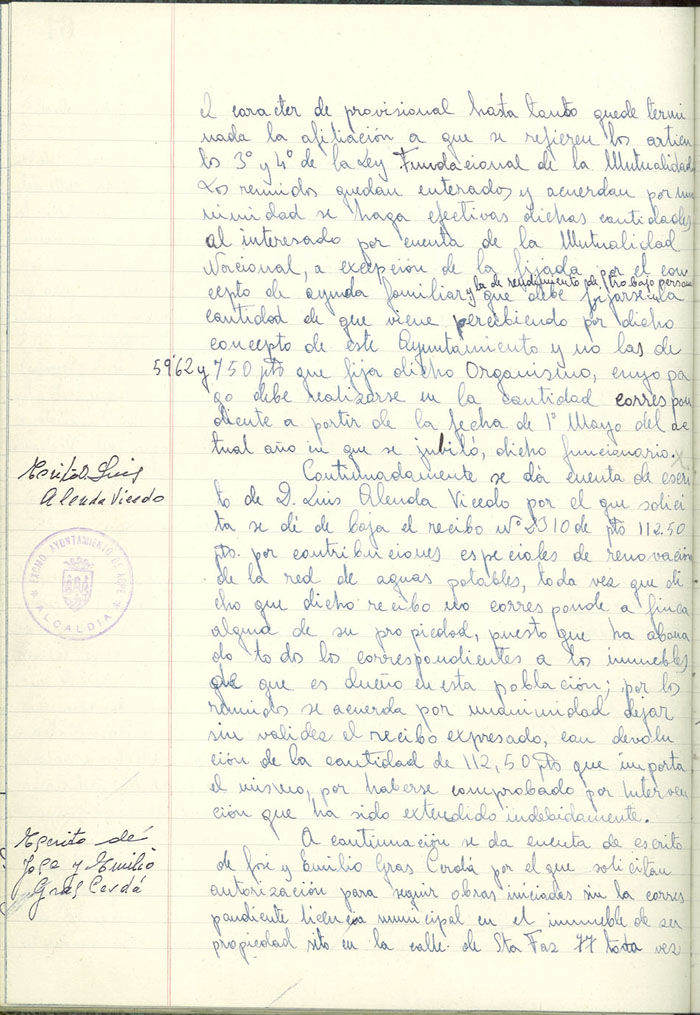 l caracter de provisional hasta tanto quede termi
nada la afiliación a que se refieren los articu
los 3º y 4º de la Ley Fundacional de la Mutualidad
Los reunidos quedan enterados y acuerdan por una
nimidad se haga efectivas dichas cantidades
al interesado por cuenta de la Mutualidad
Nacional, a excepción de la fijada por el con
y la de rendimiento de trabajo personal
cepto de ayuda familiar que debe fijarse en la
cantidad de que viene percibiendo por dicho
concepto de este Ayuntamiento y no las de
59'62 y 750 pts que fija dicho Organismo, cuyo pa
go debe realizarse en la cantidad correspon
diente a partir de la fecha de 1º Mayo del ac
tual año in que se jubiló, dicho funcionario.
Escrito D. Luis
Alenda Vicedo
Continuadamente se dá cuenta de escri
to de D. Luis Alenda Vicedo por el que solici
ta se dé de baja el recibo nº 2310 de pts 112.50
pts. por contribuciones especiales de renovación
de la red de aguas potables, toda vez que di
cho que dicho recibo no corresponde a finca
alguna de su propiedad, puesto que ha abona
do todos los correspondientes a los inmuebles
de que es dueño en esta población; por los
reunidos se acuerda por unanimidad dejar
sin validez el recibo expresado, con devolu
ción de la cantidad de 112,50 pts que importa
el mismo, por haberse comprobado por Interven
ción que ha sido extendido indebidamente.
EXCMO. AYUNTAMIENTO DE ASPE
* ALCALDIA *
Escrito de
Jose y Emilio
Gras Cerdá
A continuación se da cuenta de escrito
de José y Emilio Gras Cerdá por el que solicitan
autorización para seguir obras iniciadas sin la corres
pondiente licencia municipal en el inmueble de ser
propiedad sito en la calle de Sta Faz 77 toda vez